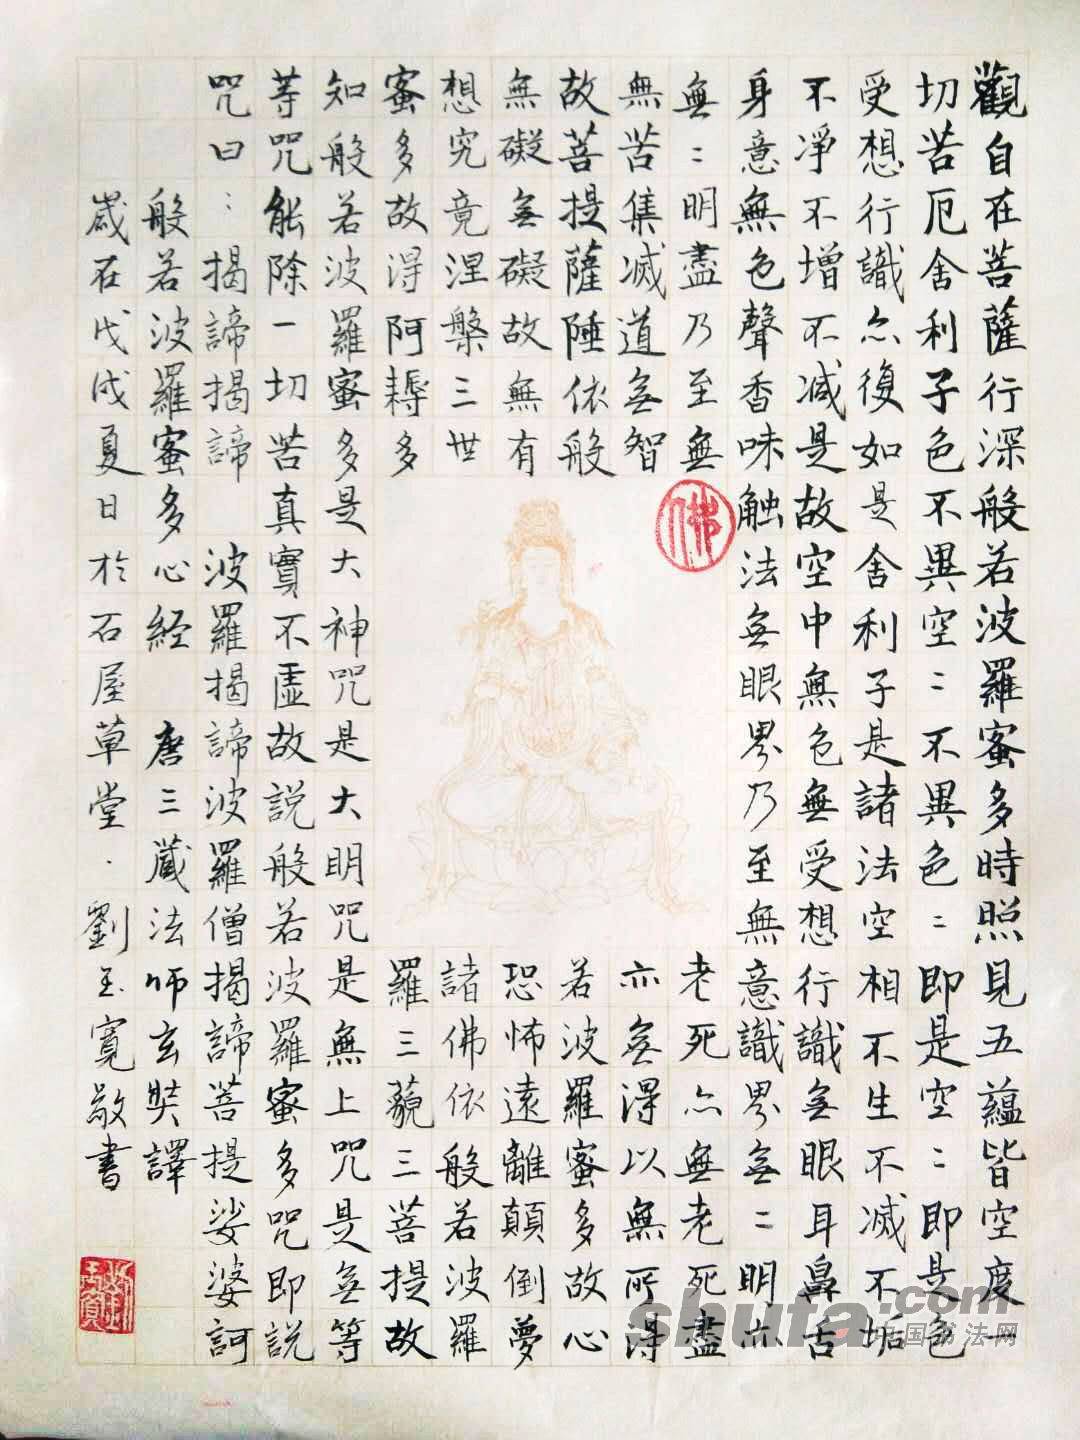 觀自在菩薩行深般若波羅蜜多時照見五蘊皆空度一
切苦厄舍利子色不異空〻不異色〻即是空〻即是色
受想行識亦復如是舍利子是諸法空相不生不滅不垢
不淨不增不減是故空中無色無受想行識無眼耳鼻舌
身意無色聲香味触法無眼界乃至無意識界無〻明亦
無〻明盡乃至無 老死亦無老死盡
無苦集滅道無智 亦無得以無所得
故菩提薩埵依般 若波羅蜜多故心
無礙無礙故無有 恐怖遠離顛倒夢
想究竟涅槃三世 諸佛依般若波羅
蜜多故得阿耨多 羅三藐三菩提故
知般若波羅蜜多是大神咒是大明咒是無上咒是無等
等咒能除一切苦真實不虛故説般若波羅蜜多咒即説
咒曰：揭諦揭諦 波羅揭諦波羅僧揭諦菩提娑婆訶
般若波羅蜜多心経 唐三藏法師玄奘譯
歲在戊戌夏日於石屋草堂·劉玉寬敬書
佛
shufa.com
中国书法网